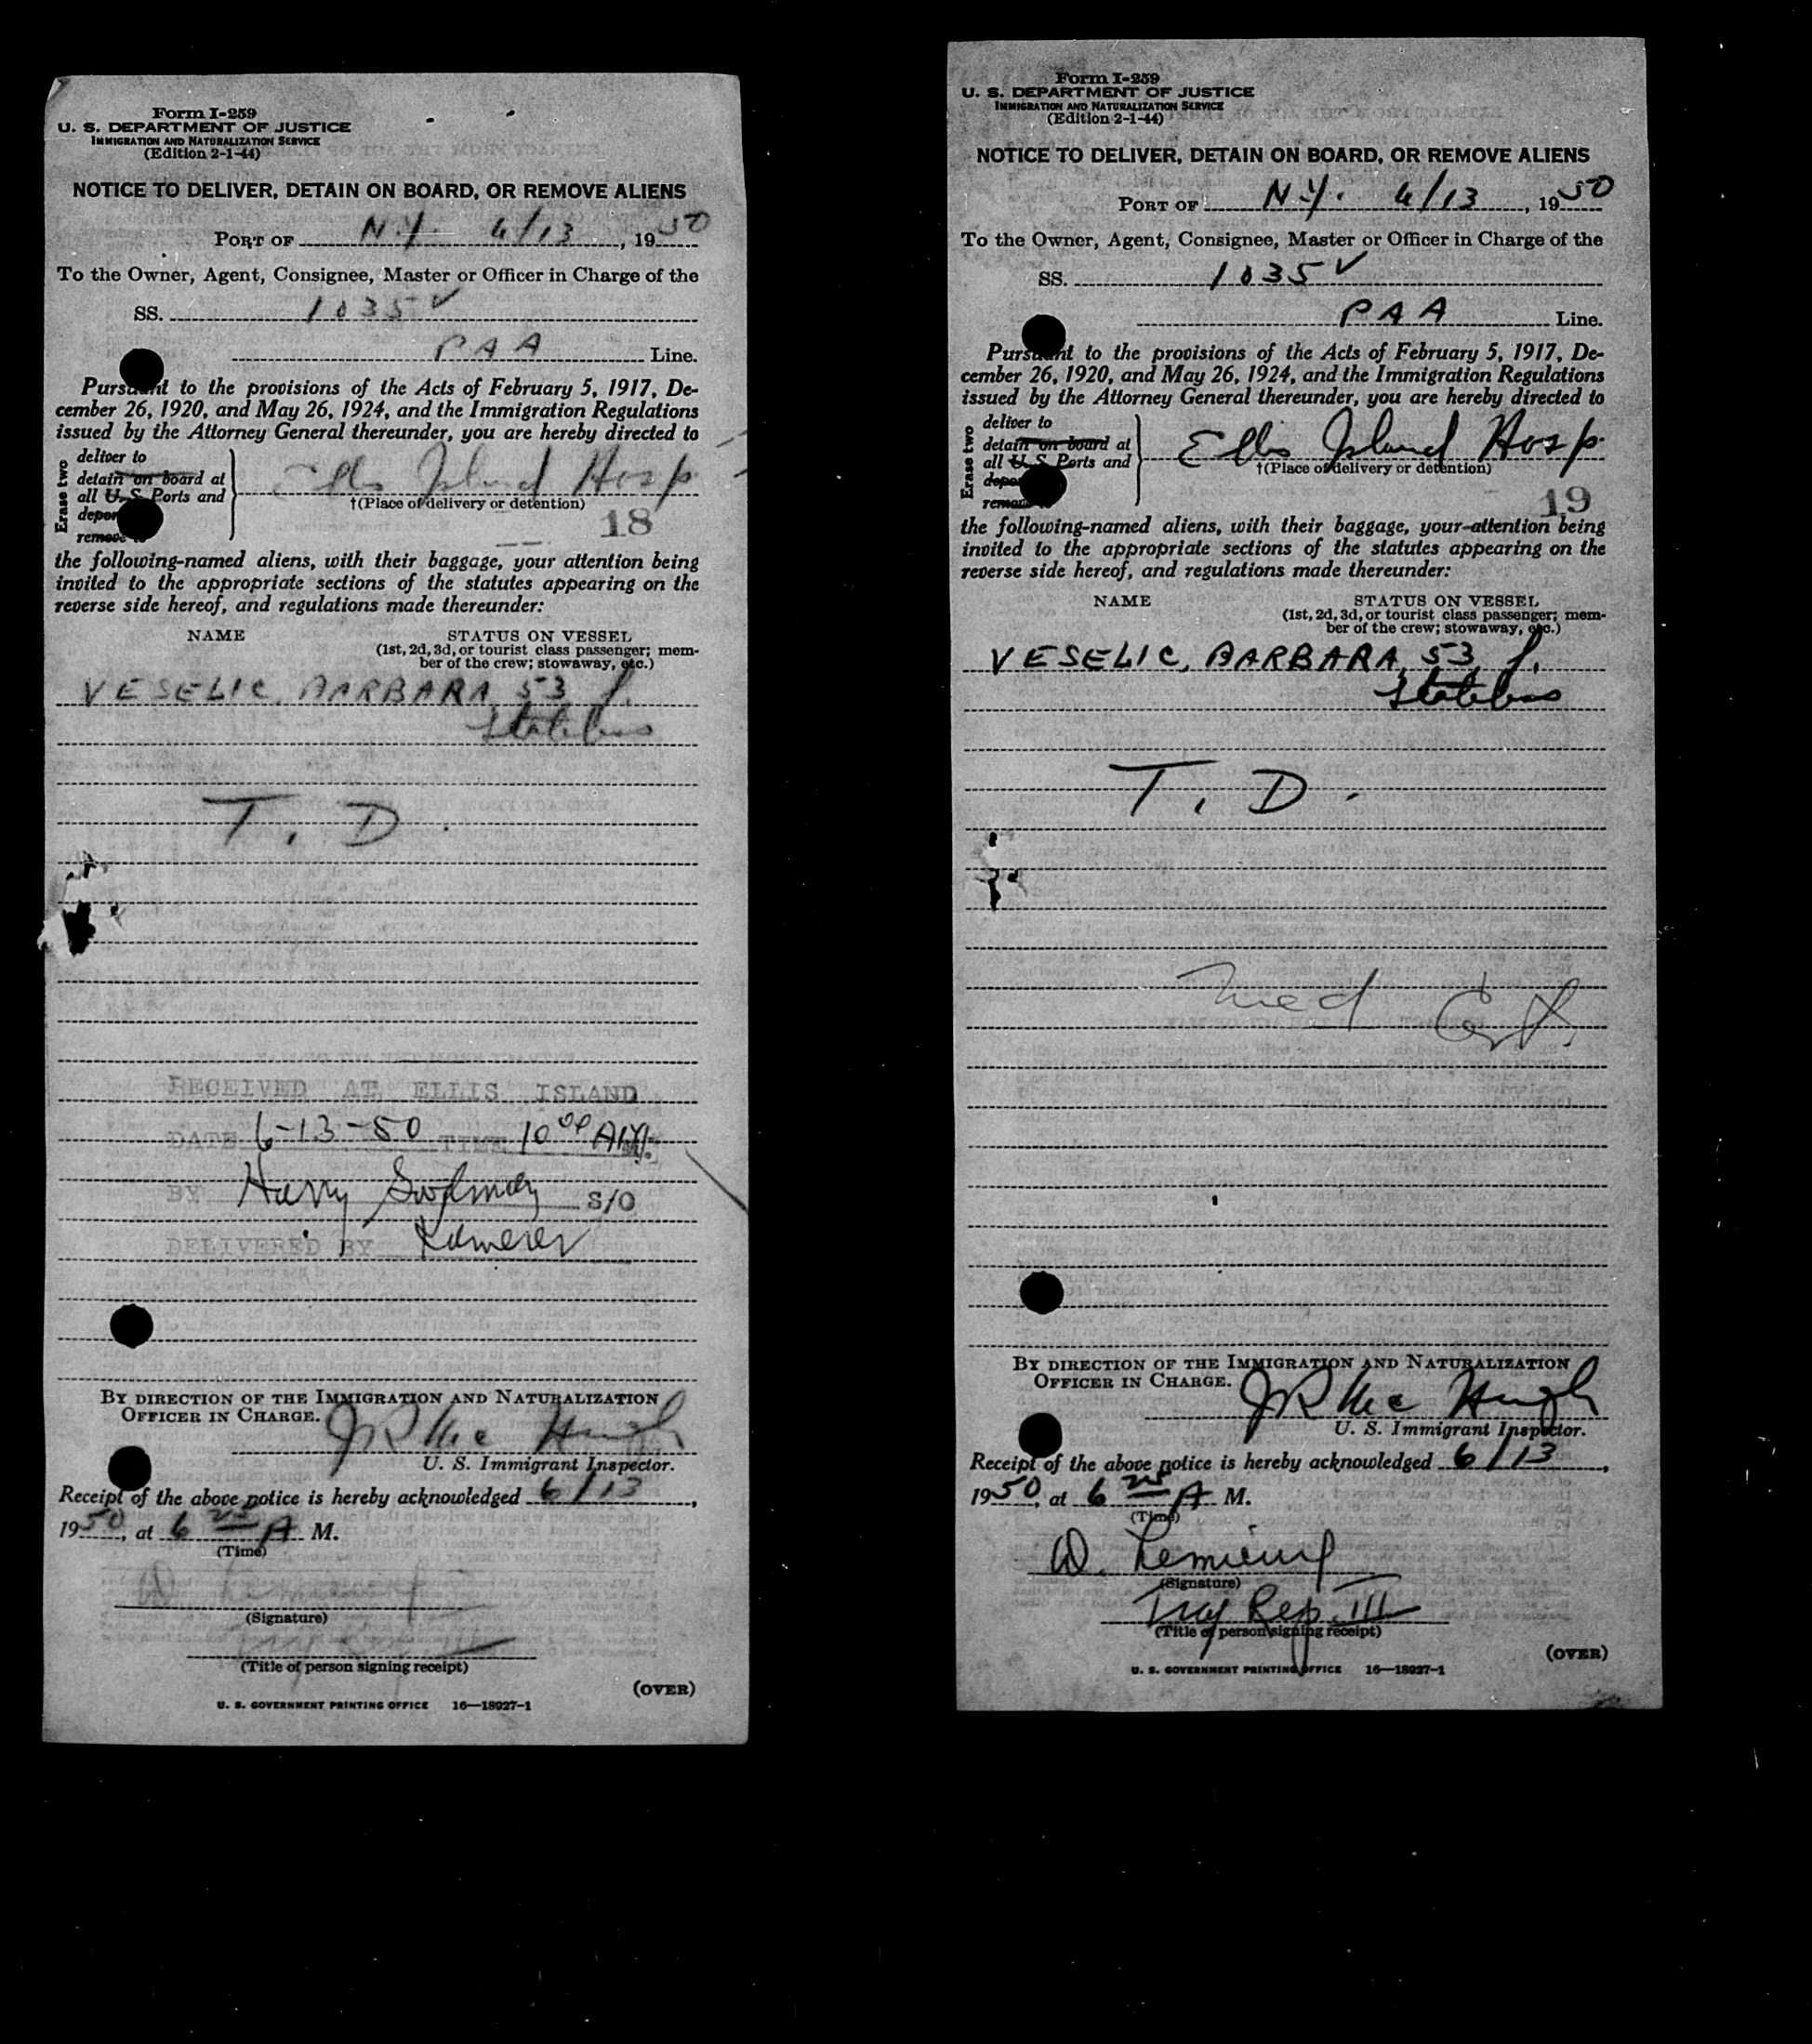 Form I-259
U. S. DEPARTMENT OF JUSTICE
IMMIGRATION AND NATURALIZATION SERVICE
(Edition 2-1-44)
NOTICE TO DELIVER, DETAIN ON BOARD, OR REMOVE ALIENS
PORT OF N.Y. 6/13, 1950
To the Owner, Agent, Consignee, Master or Officer in Charge of the
SS. 1035 V
PAA Line.
Pursuant to the provisions of the Acts of February 5, 1917, De-
cember 26, 1920, and May 26, 1924, and the Immigration Regulations
issued by the Attorney General thereunder, you are hereby directed to
Erase two
deliver to
detain on board at
all U. S. Ports and
depor
remove to
Ellis Island Hosp
†(Place of delivery or detention)
18
the following-named aliens, with their baggage, your attention being
invited to the appropriate sections of the statutes appearing on the
reverse side hereof, and regulations made thereunder:
NAME STATUS ON VESSEL
(1st, 2d, 3d, or tourist class passenger; mem-
ber of the crew; stowaway, etc.)
VESELIC, BARBARA 53 f.
Stateless
T. D.
RECEIVED AT ELLIS ISLAND
DATE 6-13-50 TIME 10 00 AM.
BY Harry S/O
DELIVERED BY
BY DIRECTION OF THE IMMIGRATION AND NATURALIZATION
OFFICER IN CHARGE.
JR Mc Hugh
U. S. Immigrant Inspector.
Receipt of the above notice is hereby acknowledged 6/13,
1950, at 6 25 A M.
(Time)
(Signature)
(Title of person signing receipt)
(OVER)
U. S. GOVERNMENT PRINTING OFFICE 16—18927-1
Form I-259
U. S. DEPARTMENT OF JUSTICE
IMMIGRATION AND NATURALIZATION SERVICE
(Edition 2-1-44)
NOTICE TO DELIVER, DETAIN ON BOARD, OR REMOVE ALIENS
PORT OF N.Y. 6/13, 1950
To the Owner, Agent, Consignee, Master or Officer in Charge of the
SS. 1035 V
PAA Line.
Pursuant to the provisions of the Acts of February 5, 1917, De-
cember 26, 1920, and May 26, 1924, and the Immigration Regulations
issued by the Attorney General thereunder, you are hereby directed to
Erase two
deliver to
detain on board at
all U. S. Ports and
depor
remove to
Ellis Island Hosp.
†(Place of delivery or detention)
19
the following-named aliens, with their baggage, your attention being
invited to the appropriate sections of the statutes appearing on the
reverse side hereof, and regulations made thereunder:
NAME STATUS ON VESSEL
(1st, 2d, 3d, or tourist class passenger; mem-
ber of the crew; stowaway, etc.)
VESELIC, BARBARA, 53, f.
Stateless
T. D.
Med Cert.
BY DIRECTION OF THE IMMIGRATION AND NATURALIZATION
OFFICER IN CHARGE.
JR Mc Hugh
U. S. Immigrant Inspector.
Receipt of the above notice is hereby acknowledged 6/13,
1950, at 6 25 A M.
(Time)
(Signature)
Rep. III
(Title of person signing receipt)
(OVER)
U. S. GOVERNMENT PRINTING OFFICE 16—18927-1